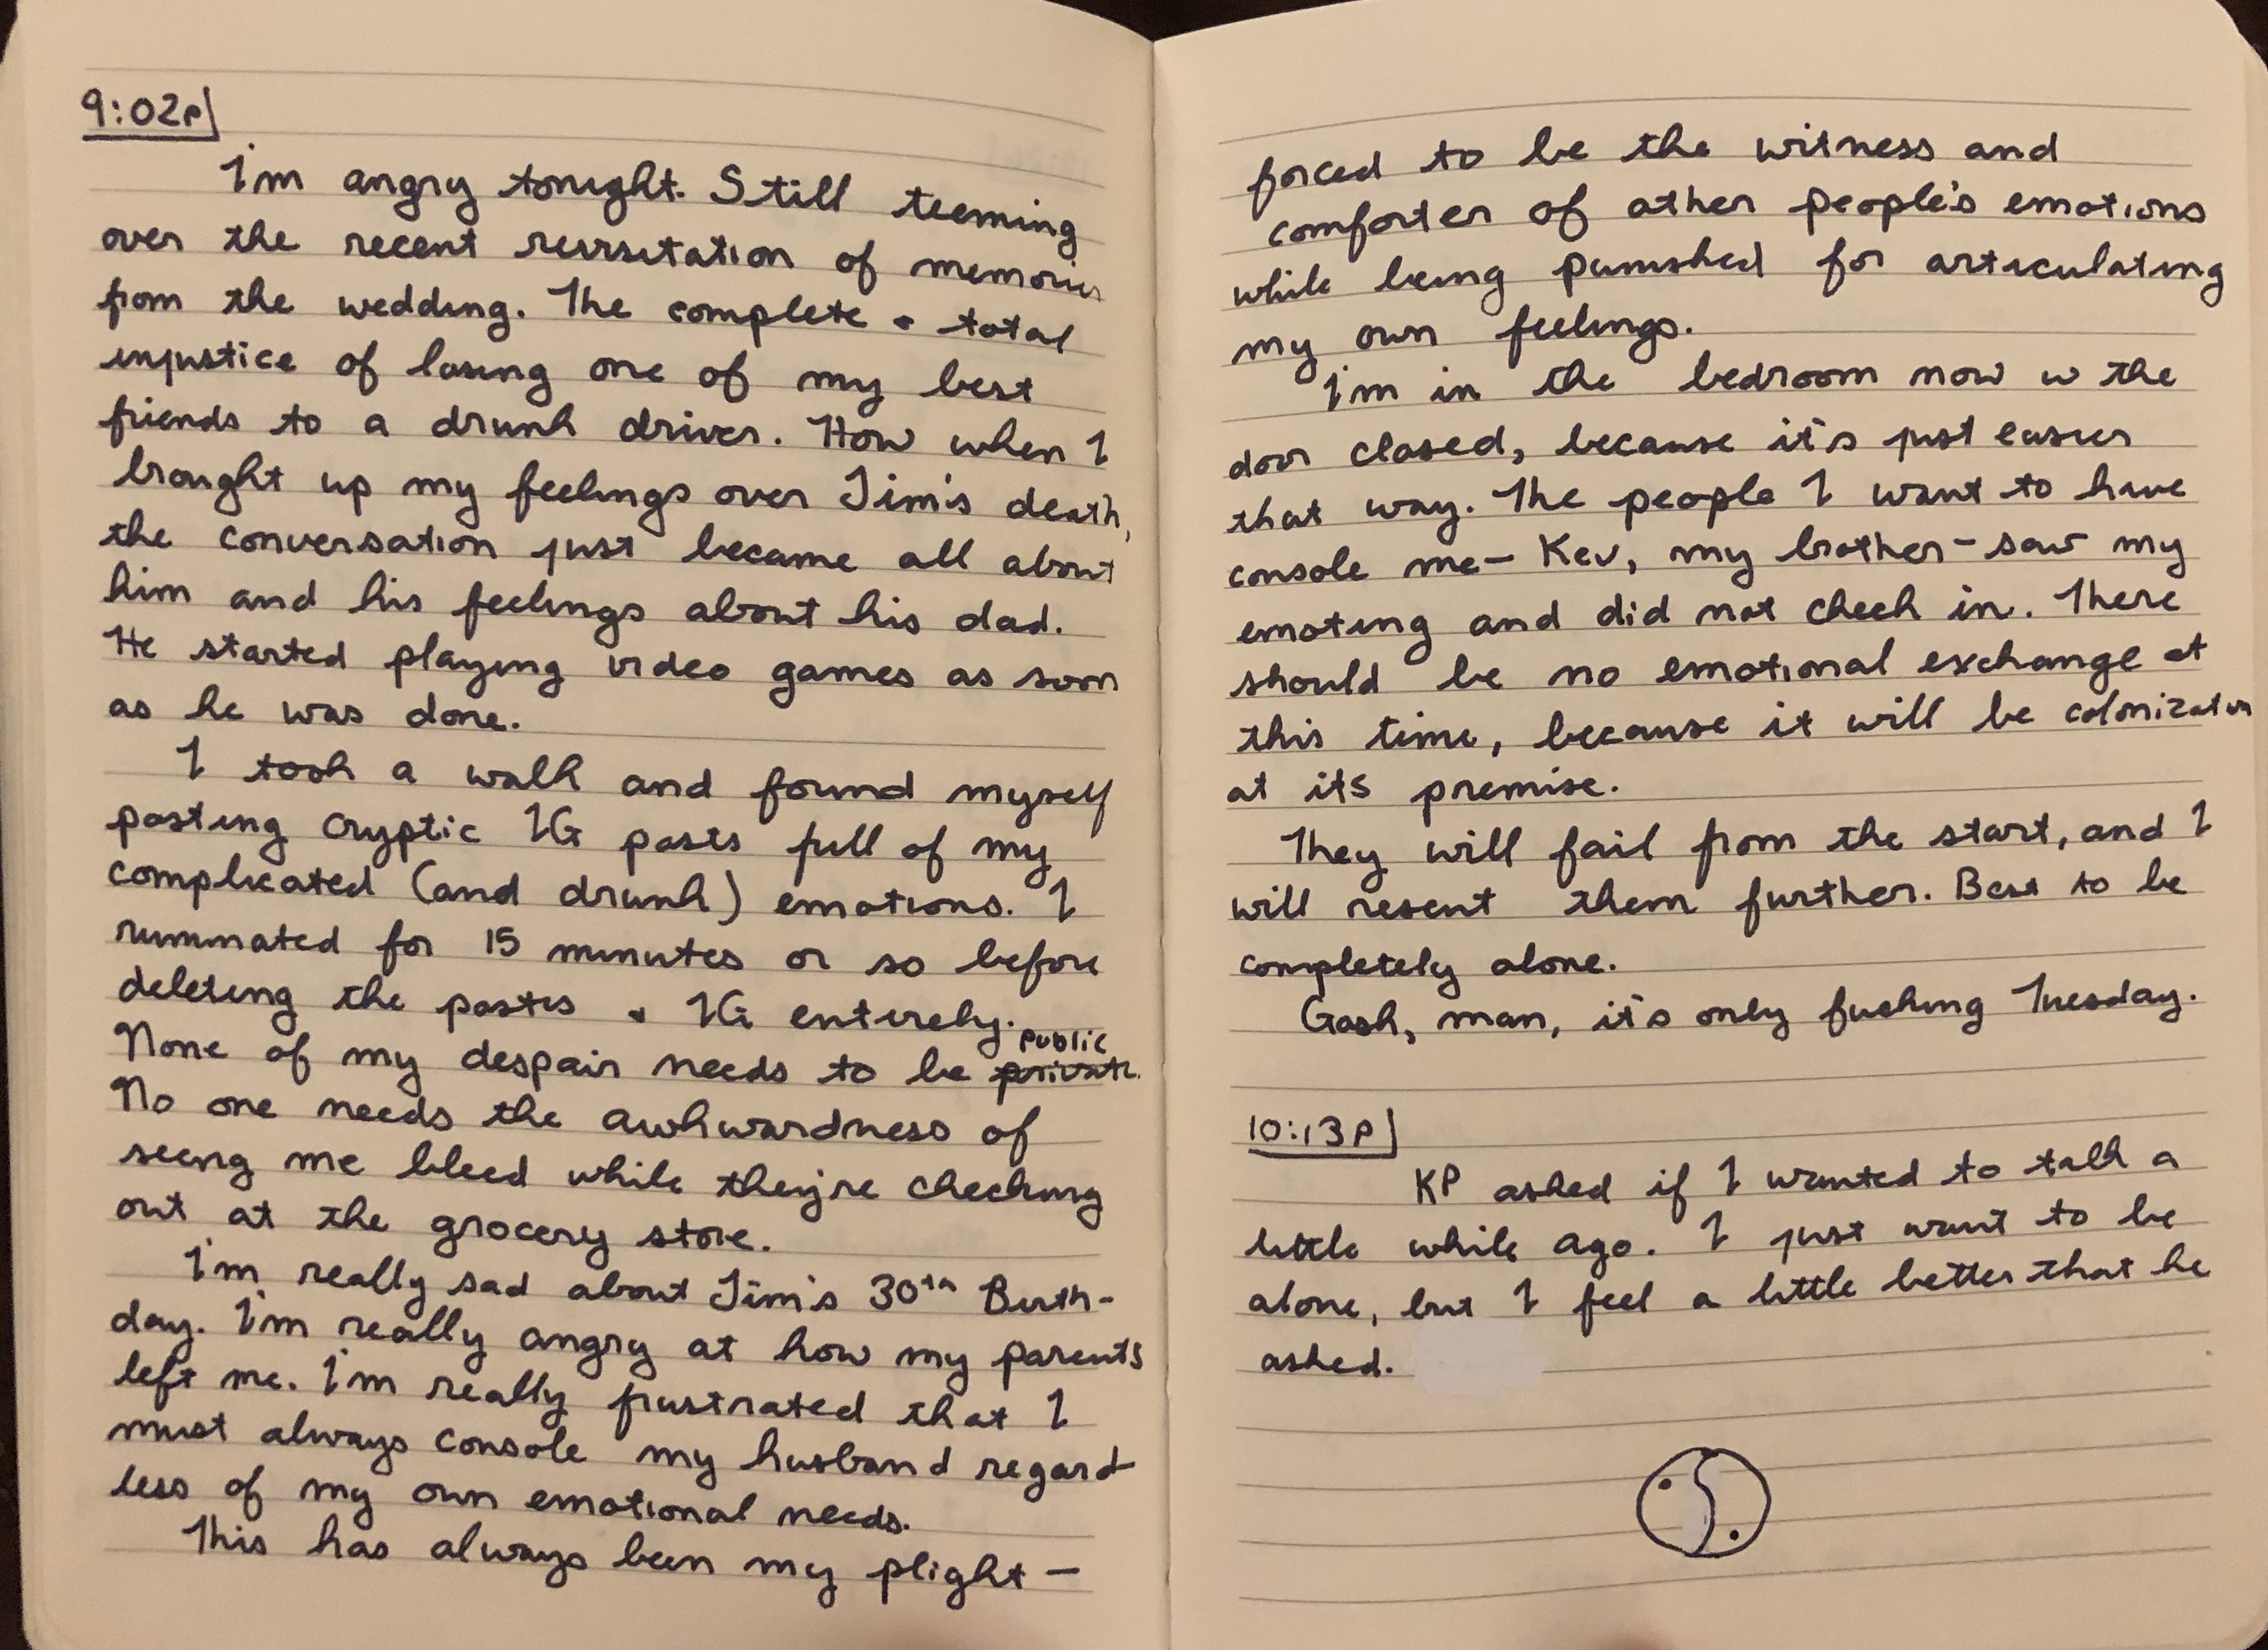 9:02p
I'm angry tonight. Still teeming
over the recent revisitation of memories
from the wedding. The complete + total
injustice of losing one of my best
friends to a drunk driver. How when I
brought up my feelings over Jim's death,
the conversation just became all about
him and his feelings about his dad.
He started playing video games as soon
as he was done.
I took a walk and found myself
posting cryptic IG posts full of my
complicated (and drunk) emotions. I
ruminated for 15 minutes or so before
deleting the posts + IG entirely.
public
None of my despair needs to be private.
No one needs the awkwardness of
seeing me bleed while they're checking
out at the grocery store.
I'm really sad about Jim's 30th Birth-
day. I'm really angry at how my parents
left me. I'm really frustrated that I
must always console my husband regard
less of my own emotional needs.
This has always been my plight—
forced to be the witness and
comforter of other people's emotions
while being punished for articulating
my own feelings.
I'm in the bedroom now w the
door closed, because it's just easier
that way. The people I want to have
console me— Kev, my brother— saw my
emoting and did not check in. There
should be no emotional exchange at
this time, because it will be colonization
at its premise.
They will fail from the start, and I
will resent them further. Best to be
completely alone.
Gosh, man, it's only fucking Tuesday.
10:13P
KP asked if I wanted to talk a
little while ago. I just want to be
alone, but I feel a little better that he
asked.